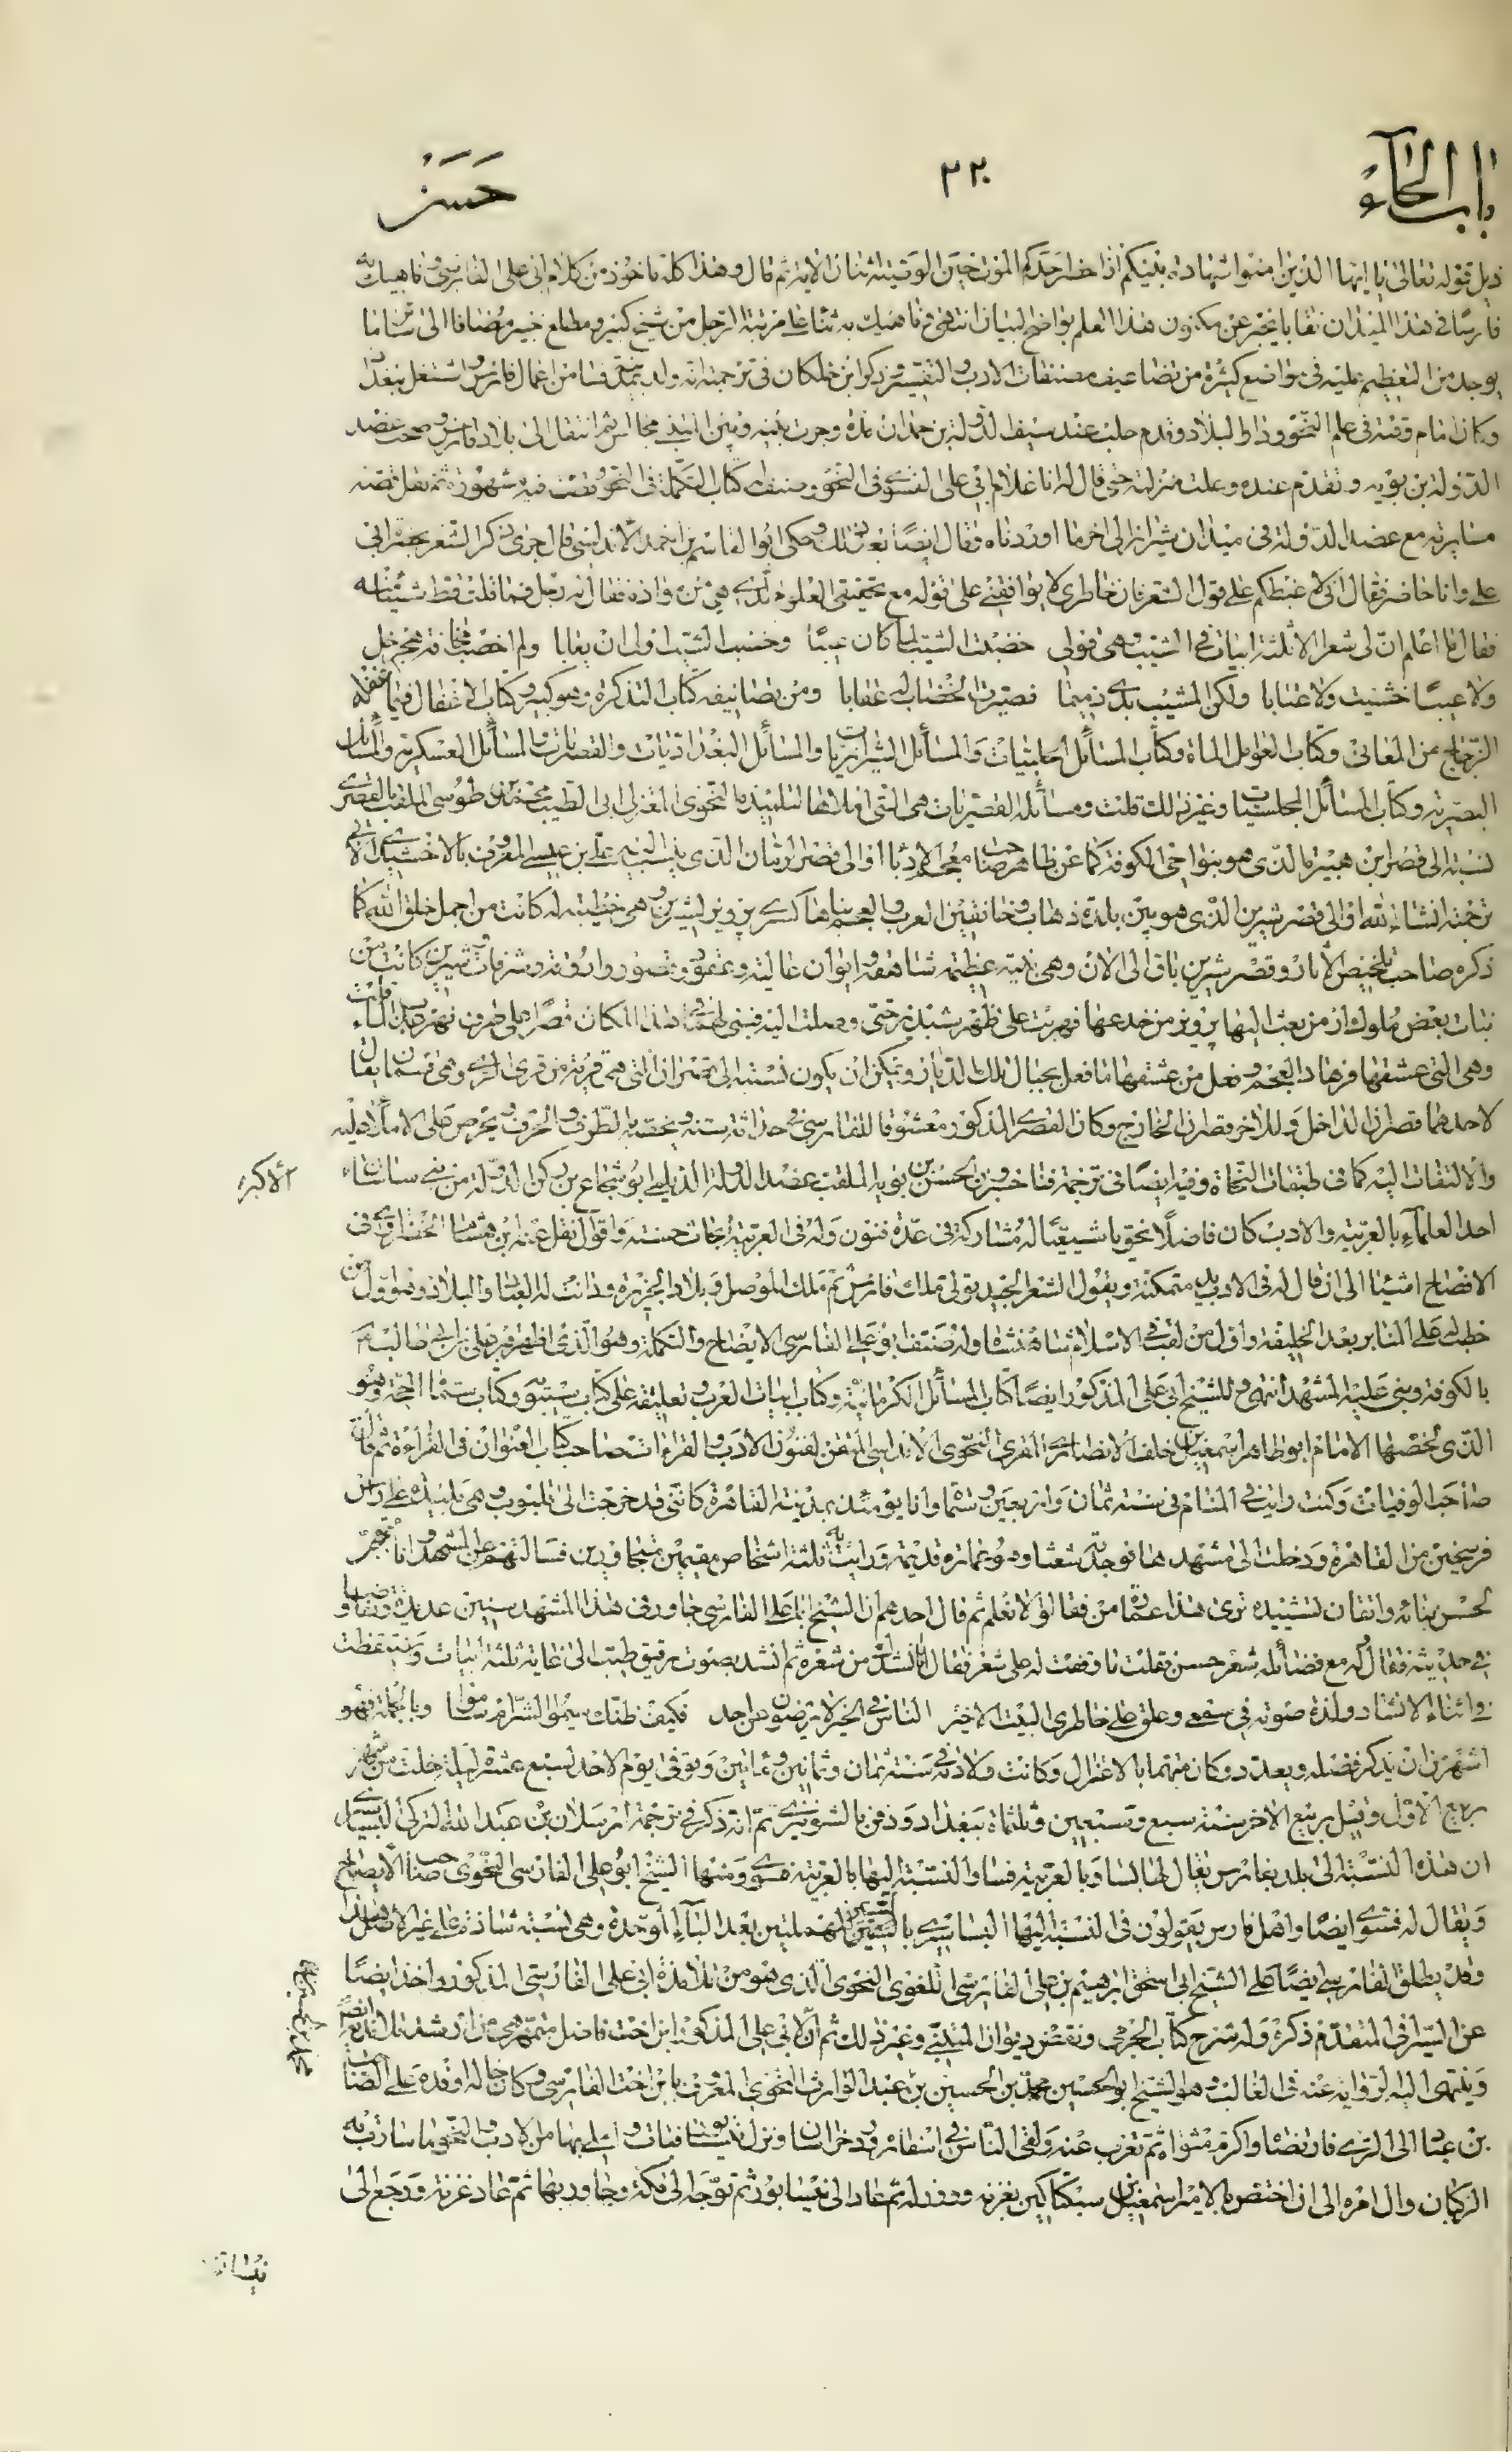 باب الحاء ٢٢٠ حسن
ذيل قوله تعالى يا ايها الذين امنوا شهادة بينكم اذا حضر احدكم الموت حين الوصية اثنان الاية ثم قال وهذا كله ماخوذ من كلام ابى على الفارسى وناهيك به
فارسًا فى هذا الميدان نقابا يخبر عن مكنون هذا العلم بواضح البيان انتهى وناهيك به ثناء على مرتبة الرجل من شيخ كبير ومطلع خبير مضافا الى سائر ما
يوجد من التعظيم عليه فى مواضع كثيرة من تضاعيف مصنفات الادب والتفسير وذكر ابن خلكان فى ترجمته انه ولد بمدينة فسا من اعمال فارس واشتغل ببغداد
وكان امام وقته فى علم النحو وذار البلاد وقدم حلب عند سيف الدولة بن حمدان مدة وجرت بينه وبين المتنبى مجالس ثم انتقل الى بلاد فارس وصحب عضد
الدولة بن بويه وتقدم عنده وعلت منزلته حتى قال له انا غلام ابى على الفسوى فى النحو وصنف له كتاب التكملة فى النحو وقصته فيه مشهورة ثم نقل قصة
مسايرته مع عضد الدولة فى ميدان شيراز الى اخر ما اوردناه فقال ايضًا بعد ذلك وحكى ابو القاسم بن احمد الاندلسى قال جرى ذكر الشعر بحضرة ابى
على وانا حاضر فقال انى لاغبطكم على قول الشعر فان خاطرى لا يوافقنى على قوله مع تحقيقى العلوم التى هى من مواده فقال له رجل فما قلت قط شيئا منه
فقال ما اعلم ان لى شعر الا ثلثة ابيات فى الشيب وهى قولى خضبت الشيب لما كان عيبًا وخضب الشيب اولى ان يعابا ولم اخضب مخافة هجر خل
ولا عيبًا خشيت ولا عتابا ولكن المشيب بدى ذميما فصيرت الخضاب له عقابا ومن تصانيفه كتاب التذكرة وهو كبير وكتاب الاغفال فيما اغفله
الزجاج من المعانى وكتاب العوامل المائة وكتاب المسائل الحلبيات والمسائل الشيرازيات والمسائل البغداديات والقصريات والمسائل العسكرية والمسائل
البصرية وكتاب المسائل المجلسيات وغير ذلك قلت ومسائله القصريات هى التى املاها لتلميذه النحوى المعتزلى ابى الطيب محمد بن طوسى الملقب بالقصرى
نسبته الى قصر ابن هبيرة الذى هو بنواحى الكوفة كما عن ظاهر صاحب معجم الادباء او الى قصر الرمان الذى ينسب اليه على بن عيسى المعروف بالاخشيدى الاتى
ترجمته انشاء الله او الى قصر شيرين الذى هو بين بلدة ذهاب وخانقين العرب والعجم بناها كسرى پرويز لشيرين وهى خطيبته له كانت من اجمل خلق الله كما
ذكره صاحب تلخيص الاثار وقصر شيرين باق الى الان وهى ابنية عظيمة شاهقة وايوان عالية وعقود وقصور واروقة وشرفات وشيرين كانت من
بنات بعض ملوك ارمن بعث اليها پرويز من خدعها فهربت على ظهر شبديز حتى وصلت اليه فبنى لها هذا المكان قصرًا على طرف نهر عذب الماء
وهى التى عشقها فرهاد العجم وفعل من عشقها ما فعل بجبال تلك الديار ويمكن ان يكون نسبته الى قصران التى هى قرية من قرى الرى وهى قسمان يقال
لاحدهما قصران الداخل وللاخر قصران الخارج وكان القصرى المذكور معشوقا للفارسى فى حداثة سنه ويخصه بالطرف والحرف ويحرص على الاملاء عليه
والالتفات اليه كما فى طبقات النحاة وفيه ايضًا فى ترجمة فناخسرو بن الحسن بن بويه الملقب عضد الدولة الديلمى ابو شجاع بن ركن الدولة من بنى ساسان الاكبر
احد العلماء بالعربية والادب كان فاضلًا نحويا شيعيًا له مشاركة فى عدة فنون وله فى العربية ابحاث حسنة واقوال نقل عنه ابن هشام الخضراوى فى
الافصاح اشياء الى ان قال له فى الادب يد متمكنة ويقول الشعر الجيد تولى ملك فارس ثم ملك الموصل وبلاد الجزيرة ودانت له العباد والبلاد وهو اول من
خطب له على المنابر بعد الخليفة واول من لقب فى الاسلام شاهنشاه وله صنف ابو على الفارسى الايضاح والتكملة وهو الذى اظهر قبر على بن ابى طالب
بالكوفة وبنى عليه المشهد انتهى وللشيخ ابى على المذكور ايضًا كتاب المسائل الكرمانية وكتاب ابيات العرب وتعليقة على كتاب سيبويه وكتاب سماه الحجة وهو
الذى لخصها الامام ابو طاهر اسمعيل بن خلف الانصارى المقرى النحوى الاندلسى المتقن لفنون الادب والقراءات صاحب كتاب العنوان فى القراءة ثم قال
صاحب الوفيات وكنت رايت فى المنام فى سنة ثمان واربعين وستمائة وانا يومئذ بمدينة القاهرة كاننى قد خرجت الى قليوب وهى بليدة على راس
فرسخين من القاهرة ودخلت الى مشهد هنا فوجدته شعثا وهو عمارة قديمة ورايت به ثلثة اشخاص مقيمين متجاورين فسالتهم عن المشهد وانا متعجب
لحسن بنائه واتقان تشييده ترى هذا عمارة من فقالوا لا نعلم ثم قال احدهم ان الشيخ ابا على الفارسى جاور فى هذا المشهد سنين عديدة وتفاوضنا
فى حديثه فقال له مع فضائله شعر حسن فقلت ما وقفت له على شعر فقال انا انشدك من شعره ثم انشد بصوت رقيق طيب الى غاية ثلثة ابيات واستيقظت
فى اثناء الانشاد ولذة صوته فى سمعى وعلق على خاطرى البيت الاخير الناس فى الخير لا يرضون عن احد فكيف ظنك سيموا الشر او ساموا وبالجملة فهو
اشهر من ان يذكر فضله ويعدد وكان متهما بالاعتزال وكانت ولادته فى سنة ثمان وثمانين ومأتين وتوفى يوم الاحد لسبع عشرة ليلة خلت من شهر
ربيع الاول وقيل ربيع الاخر سنة سبع وسبعين وثلثمائة ببغداد ودفن بالشونيزى ثم انه ذكر فى ترجمة ارسلان بن عبد الله التركى البساسيرى
ان هذه النسبة الى بلد بفارس يقال لها بسا وبالعربية فسا والنسبة اليها بالعربية فسوى ومنها الشيخ ابو على الفارسى النحوى صاحب الايضاح
ويقال له فسوى ايضًا واهل فارس يقولون فى النسبة اليها البساسيرى بالسينين المهملتين بعد الباء الموحدة وهى نسبة شاذة على غير الاصل هذا
وقد يطلق الفارسى ايضًا على الشيخ ابى اسحق ابرهيم بن على الفارسى اللغوى النحوى الذى هو من تلامذة ابى على الفارسى المذكور واخذ ايضًا
عن السيرافى المتقدم ذكره وله شرح كتاب الجرمى ونقض ديوان المتنبى وغير ذلك ثم ان لابى على المذكور ابن اخت فاضل متمهر
وينتهى اليه الرواية عنه فى الغالب وهو الشيخ ابو الحسين محمد بن الحسين بن عبد الوارث النحوى المعروف بابن اخت الفارسى وكان خاله اوفده على الصاحب
بن عباد الى الرى فارتضاه واكرم مثواه ثم تغرب عنه ولقى الناس فى اسفاره وورد خراسان ونزل نيسابور واملى بها من الادب والنحو ما سارت به
الركبان وال امره الى ان اختص بالامير اسمعيل بن سبكتكين بغزنه ووزر له ثم عاد الى نيسابور ثم توجه الى مكة وجاور بها ثم عاد غزنة ورجع الى